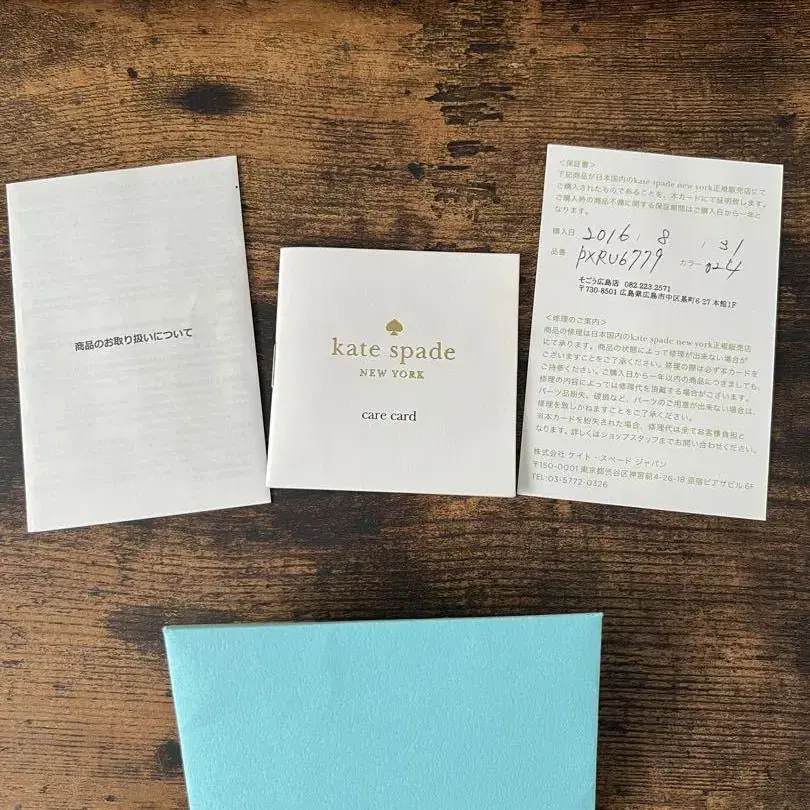 商品のお取り扱いについて
kate spade
NEW YORK
care card
<保証書>
下記商品が日本国内のkate spade new york正規販売店にて
ご購入されたものであることを、本カードにて証明致します。
ご購入時の商品不備に関する保証期間はご購入日から一年と
なります。
購入日 2016 / 8 / 31
品番 PXRU6779 カラー 024
そごう広島店 082.223.2571
〒730-8501 広島県広島市中区基町6-27 本館1F
<修理のご案内>
商品の修理は日本国内のkate spade new york正規販売店
にて承ります。商品の状態によって修理が出来ない場合が
ございますことをご了承ください。修理の際は必ず本カードを
ご持参ください。ご購入日から一年以内の商品につきましても、
修理の内容によっては修理代を頂戴する場合がございます。
パーツ品紛失、破損など、パーツのご用意が出来ない場合は、
修理を致しかねますことをご了承ください。
※本カードを紛失された場合、修理代は全てお客様負担と
なります。詳しくはショップスタッフまでお問い合わせください。
株式会社 ケイト・スペード ジャパン
〒150-0001 東京都渋谷区神宮前4-26-18 原宿ピアザビル 6F
TEL:03-5772-0326